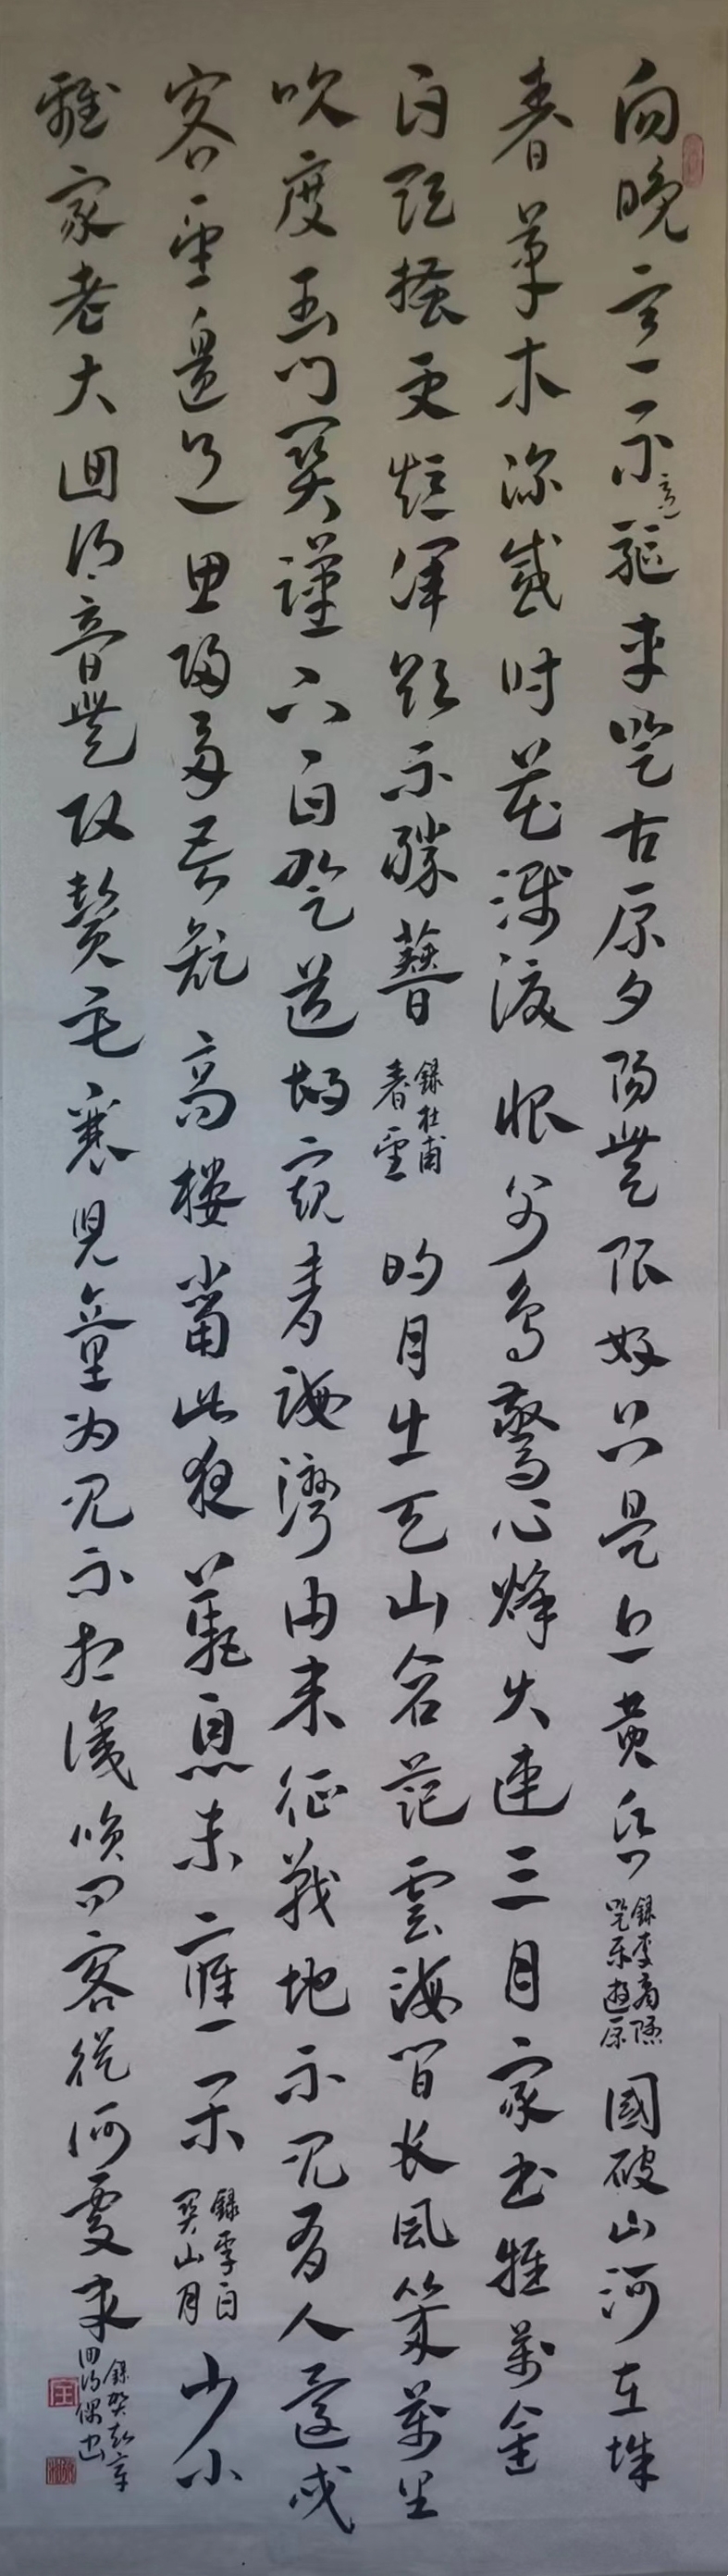 向晚意不適驅車登古原夕陽無限好只是近黃昏 錄李商隱登樂遊原 國破山河在城
春草木深感時花濺淚恨別鳥驚心烽火連三月家書抵萬金
白頭搔更短渾欲不勝簪 錄杜甫春望 明月出天山蒼茫雲海間長風幾萬里
吹度玉門關漢下白登道胡窺青海灣由來征戰地不見有人還戍
客望邊邑思歸多苦顏高樓當此夜歎息未應閑 錄李白關山月 少小
離家老大回鄉音無改鬢毛衰兒童相見不相識笑問客從何處來 錄賀知章回鄉偶書